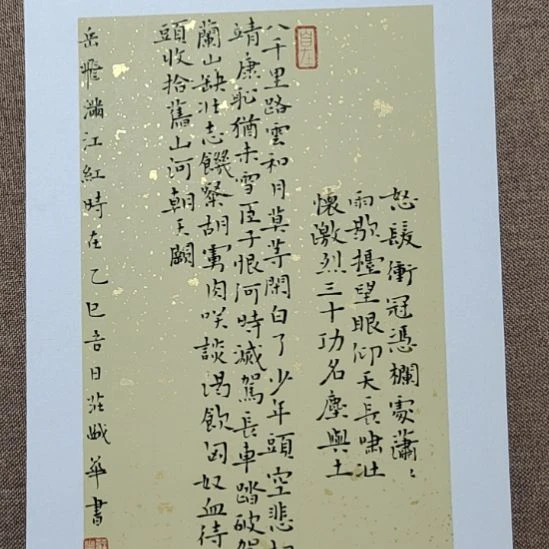 怒髮衝冠憑欄處瀟〻
雨歇擡望眼仰天長嘯壯
懷激烈三十功名塵與土
八千里路雲和月莫等閑白了少年頭空悲切
靖康恥猶未雪臣子恨何時滅駕長車踏破賀
蘭山缺壯志饑餐胡虜肉笑談渴飲匈奴血待
頭收拾舊山河朝天闕
岳飛滿江紅時在乙巳吉日莊華書